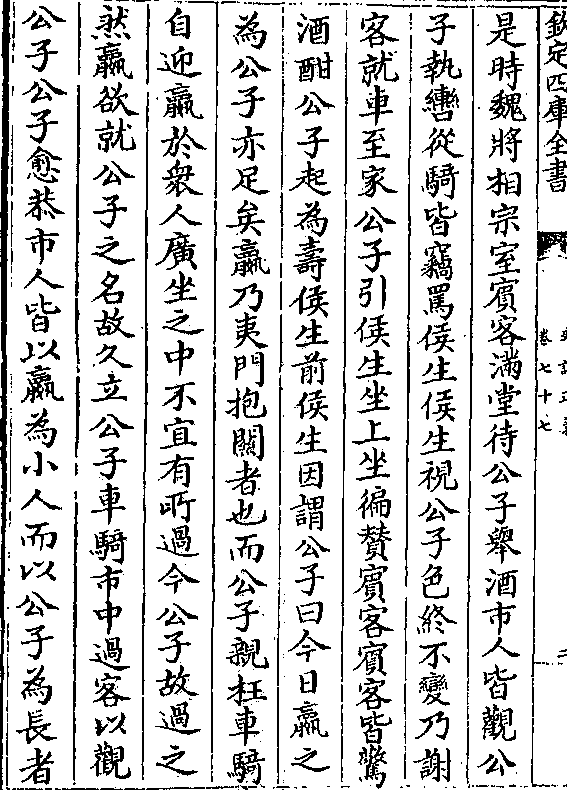 欽定四庫全書
卷七十七
二
是時魏將相宗室賓客滿堂待公子舉酒市人皆觀公
子執轡從騎皆竊罵侯生侯生視公子色終不變乃謝
客就車至家公子引侯生坐上坐徧贊賓客賓客皆驚
酒酣公子起為壽侯生前侯生因謂公子曰今日嬴之
為公子亦足矣嬴乃夷門抱關者也而公子親枉車騎
自迎嬴於衆人廣坐之中不宜有所過今公子故過之
然嬴欲就公子之名故久立公子車騎市中過客以觀
公子公子愈恭市人皆以嬴為小人而以公子為長者